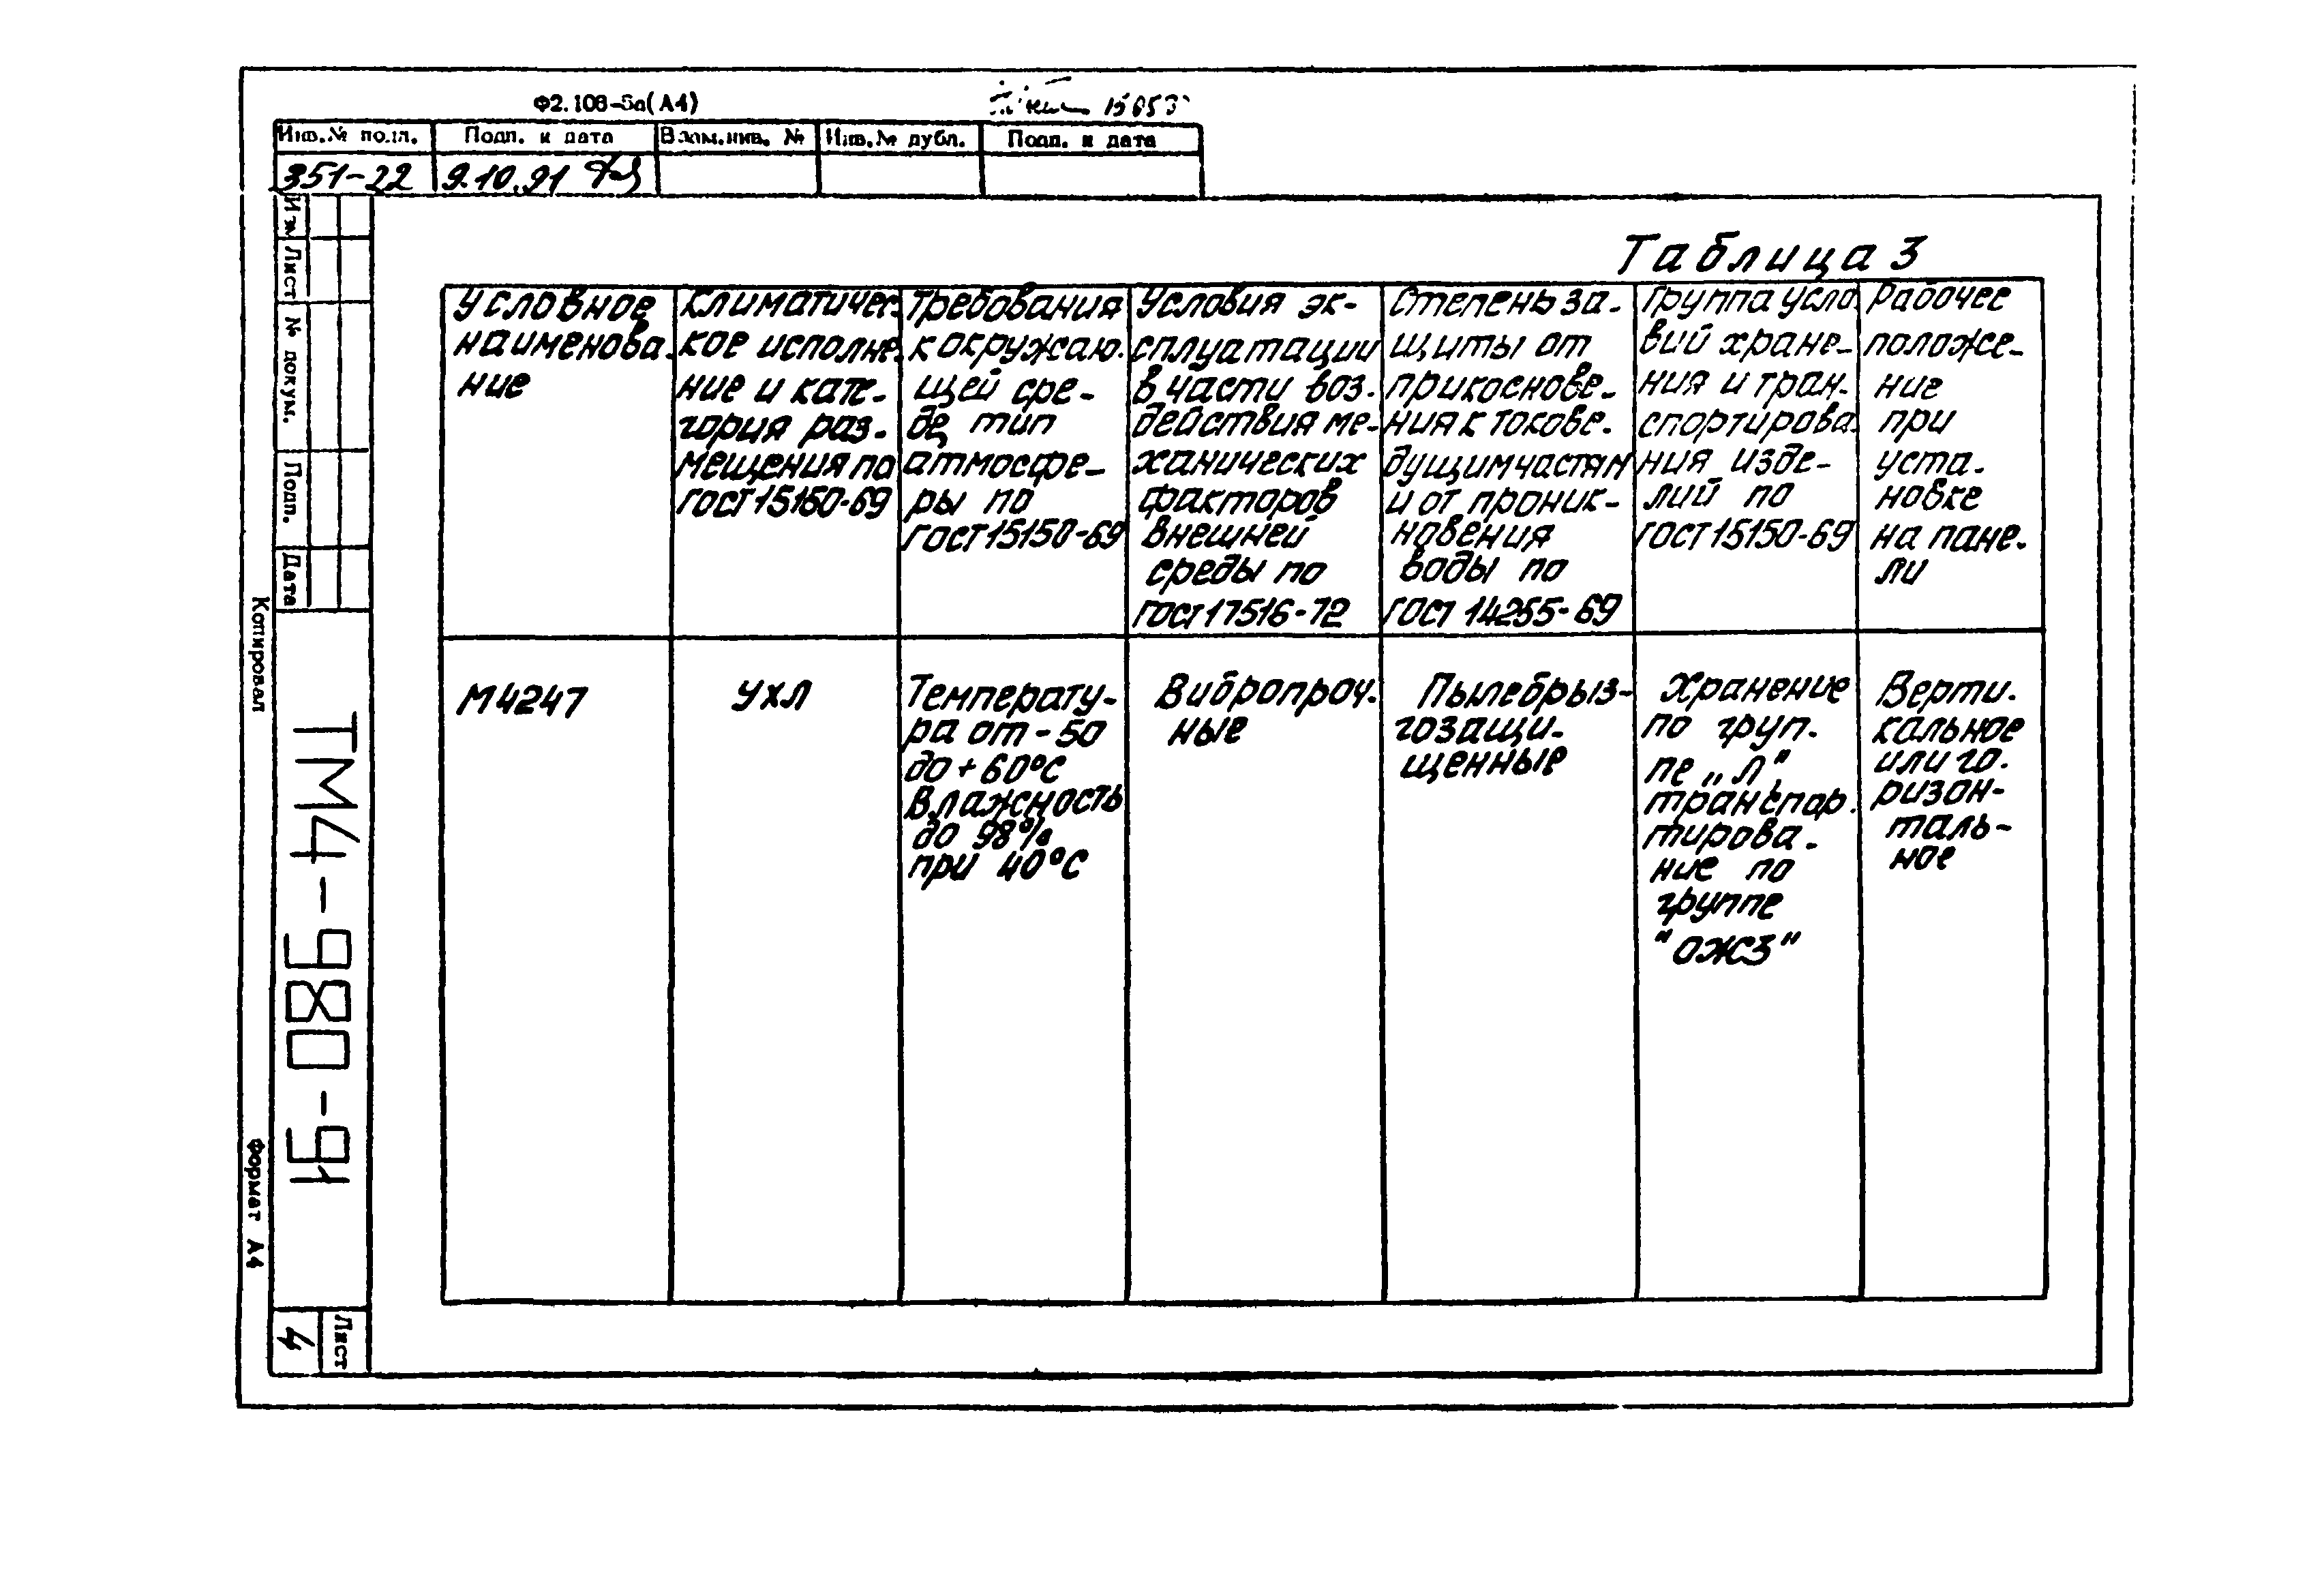 Ф2.108-5а(А4)
Инв.№ подл. Подп. и дата Взам.инв. № Инв.№ дубл. Подп. и дата
351-22 9.10.91
Изм Лист № докум. Подп. Дата
Копировал
ТМ4-980-91
Формат А4
Лист
4
Таблица 3
Условное
наименова-
ние
Климатичес-
кое исполне-
ние и кате-
гория раз-
мещения по
ГОСТ 15150-69
Требования
к окружаю-
щей сре-
де, тип
атмосфе-
ры по
ГОСТ 15150-69
Условия эк-
сплуатации
в части воз-
действия ме-
ханических
факторов
внешней
среды по
ГОСТ 17516-72
Степень за-
щиты от
прикоснове-
ния к токове-
дущим частям
и от проник-
новения
воды по
ГОСТ 14255-69
Группа усло-
вий хране-
ния и тран-
спортирова-
ния изде-
лий по
ГОСТ 15150-69
Рабочее
положе-
ние
при
уста-
новке
на пане-
ли
М4247
УХЛ
Температу-
ра от -50
до +60°С
Влажность
до 98%
при 40°С
Вибропроч-
ные
Пылебрыз-
гозащи-
щенные
Хранение
по груп-
пе „Л",
транспор-
тирова-
ние по
группе
"ОЖ3"
Верти-
кальное
или го-
ризон-
таль-
ное